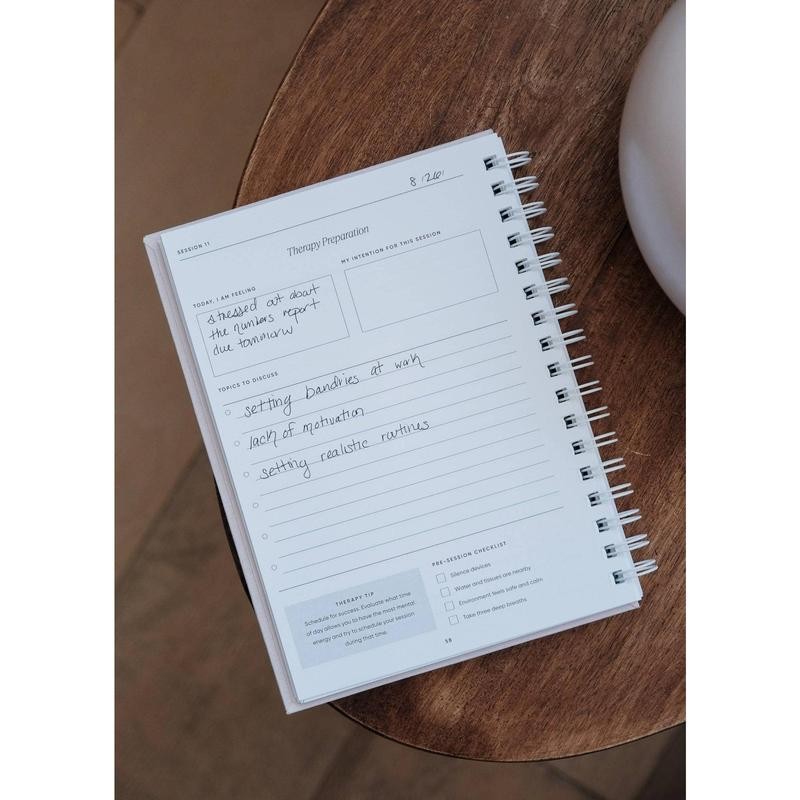 8/26/
SESSION 11
Therapy Preparation
TODAY, I AM FEELING
stressed out about
the numbers report
due tomorrow
MY INTENTION FOR THIS SESSION
TOPICS TO DISCUSS
setting bandries at work
lack of motivation
setting realistic routines
THERAPY TIP
Schedule for success. Evaluate what time
of day allows you to have the most mental
energy and try to schedule your session
during that time.
PRE-SESSION CHECKLIST
Silence devices
Water and tissues are nearby
Environment feels safe and calm
Take three deep breaths
58